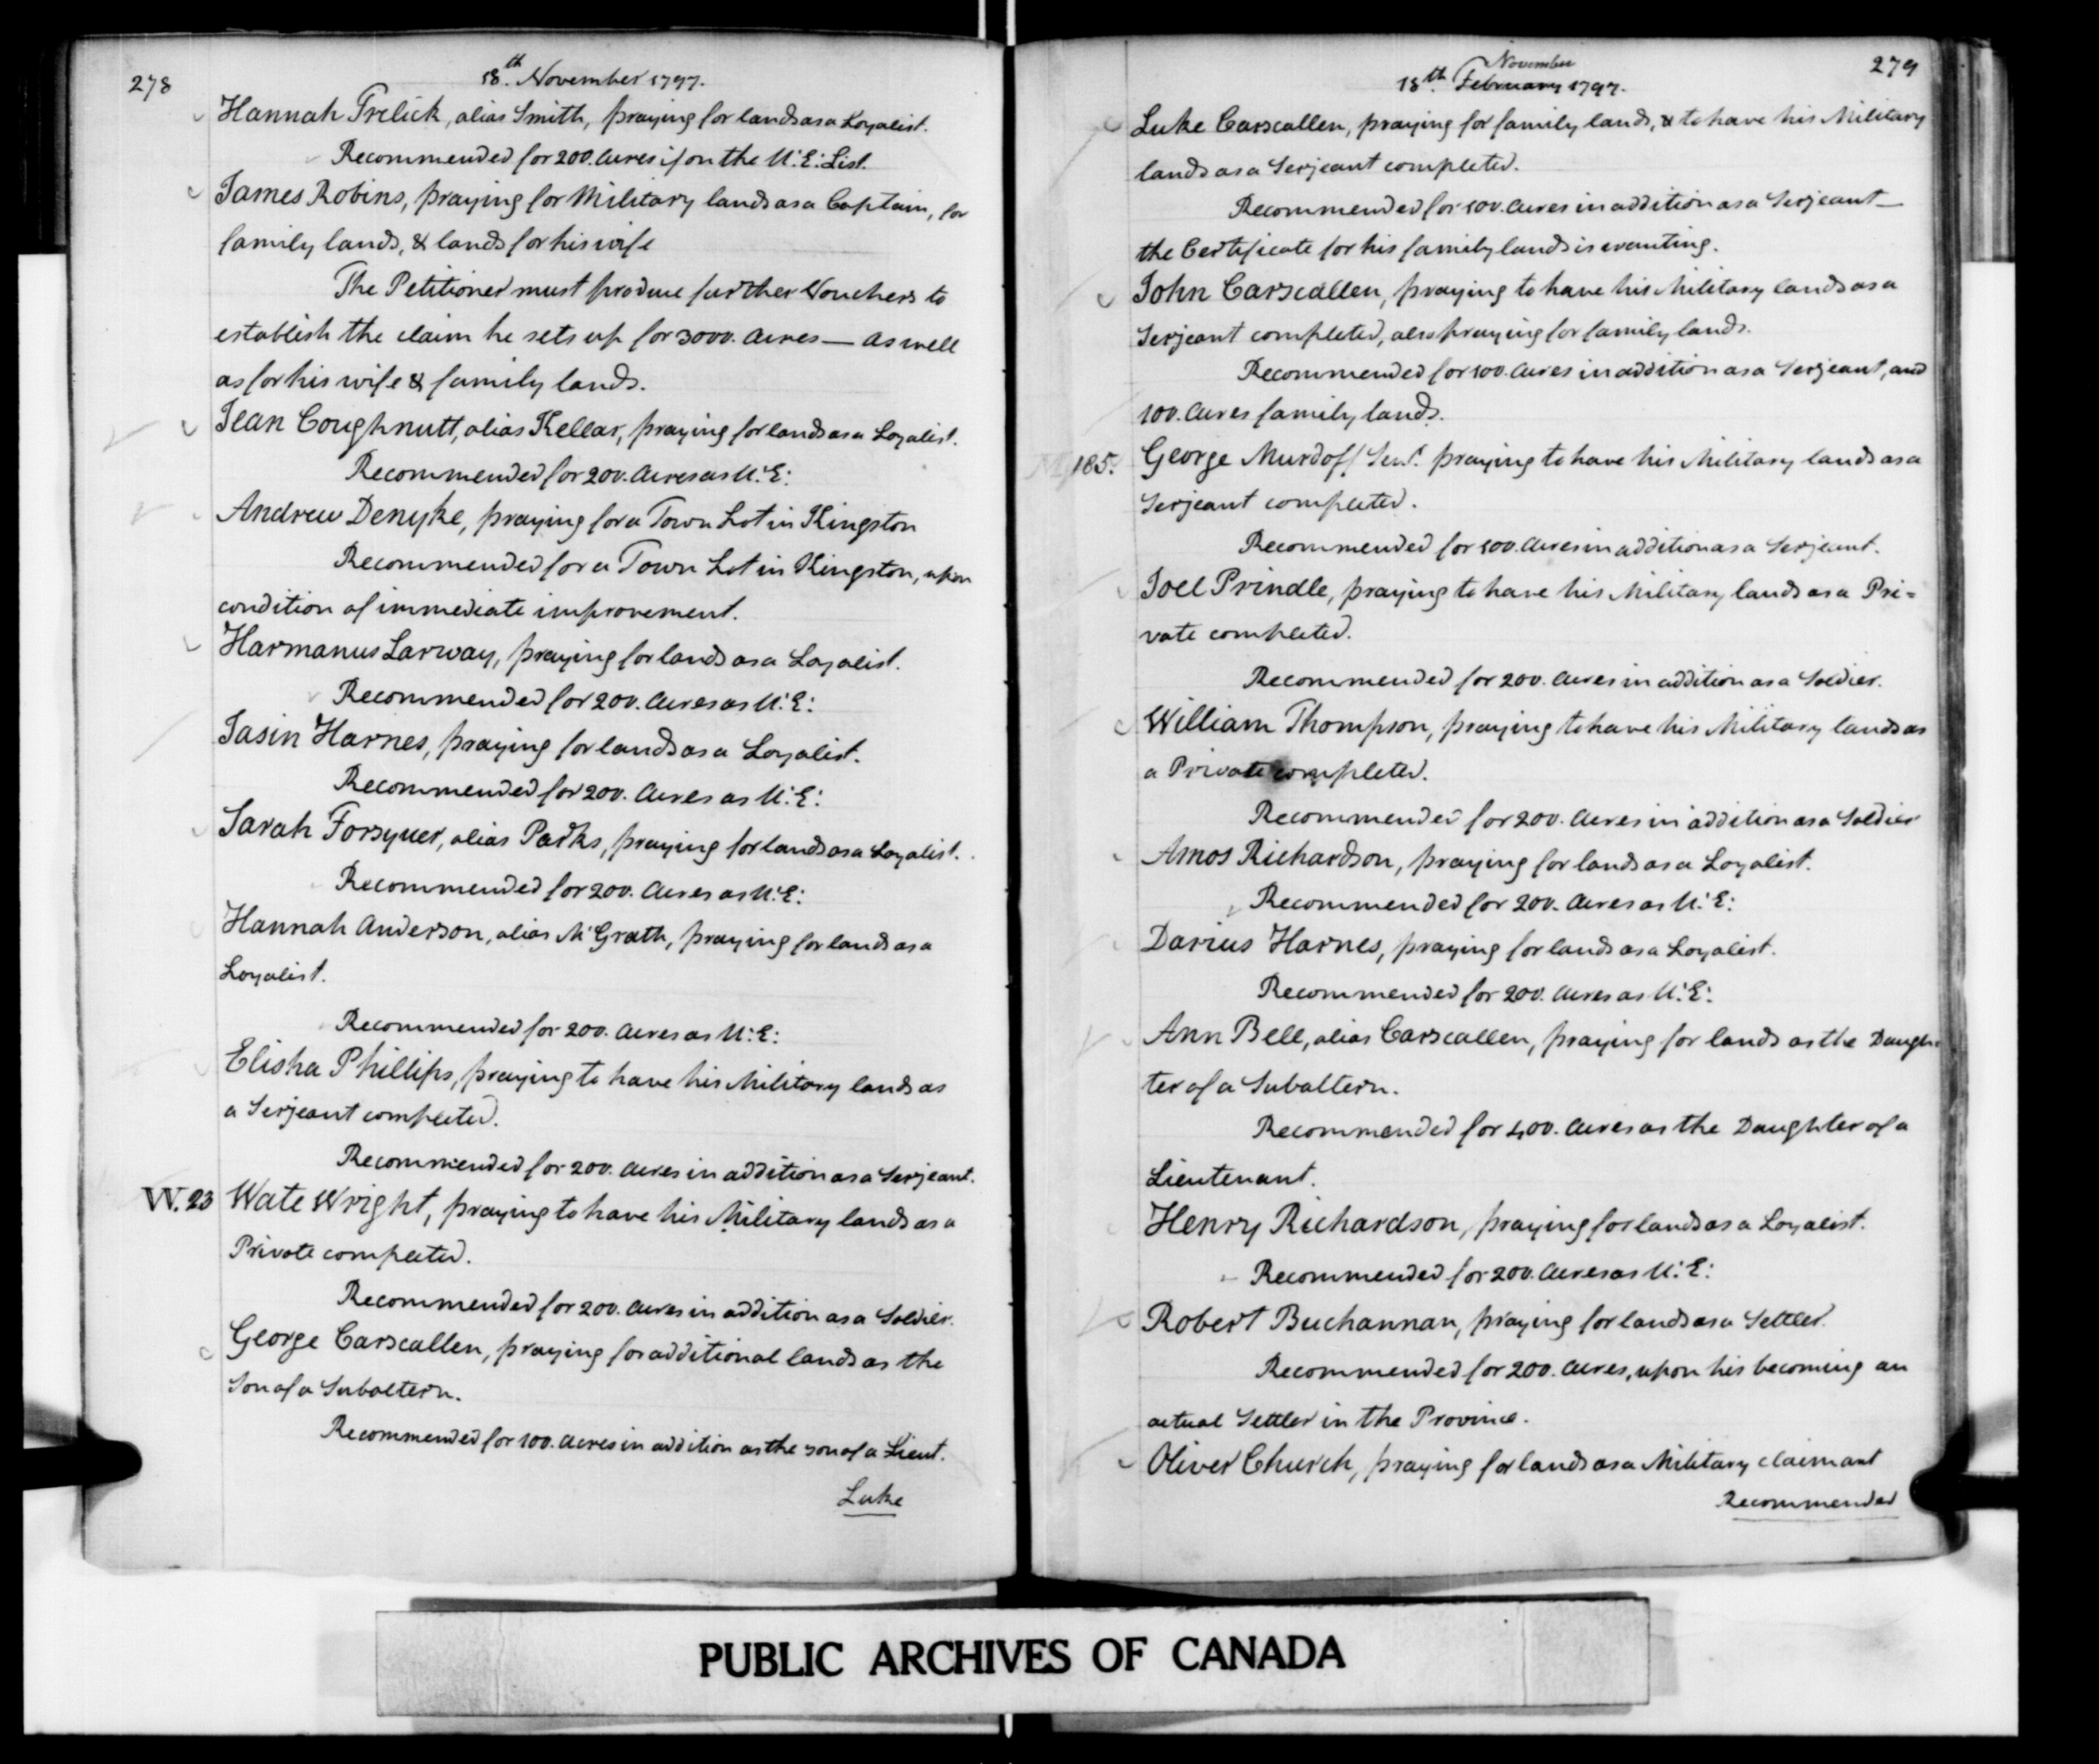 278
18th. November 1797.
Hannah Trelick, alias Smith, praying for lands as a Loyalist.
Recommended for 200. Acres if on the U.E: List.
James Robins, praying for Military lands as a Captain, for
family lands, & lands for his wife
The Petitioner must produce further Vouchers to
establish the claim he sets up for 3000. Acres — as well
as for his wife & family lands.
Jean Coughnutt, alias Kellar, praying for lands as a Loyalist.
Recommended for 200. Acres as U.E:
Andrew Denyke, praying for a Town Lot in Kingston
Recommended for a Town Lot in Kingston, upon
condition of immediate improvement.
Harmanus Larway, praying for lands as a Loyalist.
Recommended for 200. Acres as U.E:
Jasin Harnes, praying for lands as a Loyalist.
Recommended for 200. Acres as U.E:
Sarah Forsyuer, alias Parks, praying for lands as a Loyalist.
Recommended for 200. Acres as U.E:
Hannah Anderson, alias McGrath, praying for lands as a
Loyalist.
Recommended for 200. Acres as U.E:
Elisha Phillips, praying to have his Military lands as
a Serjeant completed.
Recommended for 200. Acres in addition as a Serjeant.
W. 23 Wate Wright, praying to have his Military lands as a
Private completed.
Recommended for 200. Acres in addition as a Soldier.
George Carscallen, praying for additional lands as the
Son of a Subaltern.
Recommended for 100. Acres in addition as the son of a Lieut.
Luke
279
November
18th. February 1797.
Luke Carscallen, praying for family lands, & to have his Military
lands as a Serjeant completed.
Recommended for 100. Acres in addition as a Serjeant —
the Certificate for his family lands is wanting.
John Carscallen, praying to have his Military lands as a
Serjeant completed, also praying for family lands.
Recommended for 100. Acres in addition as a Serjeant, and
100. Acres family lands.
M 185. George Murdoff Senr. praying to have his Military lands as a
Serjeant completed.
Recommended for 100. Acres in addition as a Serjeant.
Joel Prindle, praying to have his Military lands as a Pri=
vate completed.
Recommended for 200. Acres in addition as a Soldier.
William Thompson, praying to have his Military lands as
a Private completed.
Recommended for 200. Acres in addition as a Soldier
Amos Richardson, praying for lands as a Loyalist.
Recommended for 200. Acres as U.E:
Darius Harnes, praying for lands as a Loyalist.
Recommended for 200. Acres as U.E:
Ann Bell, alias Carscallen, praying for lands as the Daugh=
ter of a Subaltern.
Recommended for 400. Acres as the Daughter of a
Lieutenant.
Henry Richardson, praying for lands as a Loyalist.
Recommended for 200. Acres as U.E:
Robert Buchannan, praying for lands as a Settler.
Recommended for 200. Acres, upon his becoming an
actual Settler in the Province.
Oliver Church, praying for lands as a Military claimant
Recommended
PUBLIC ARCHIVES OF CANADA